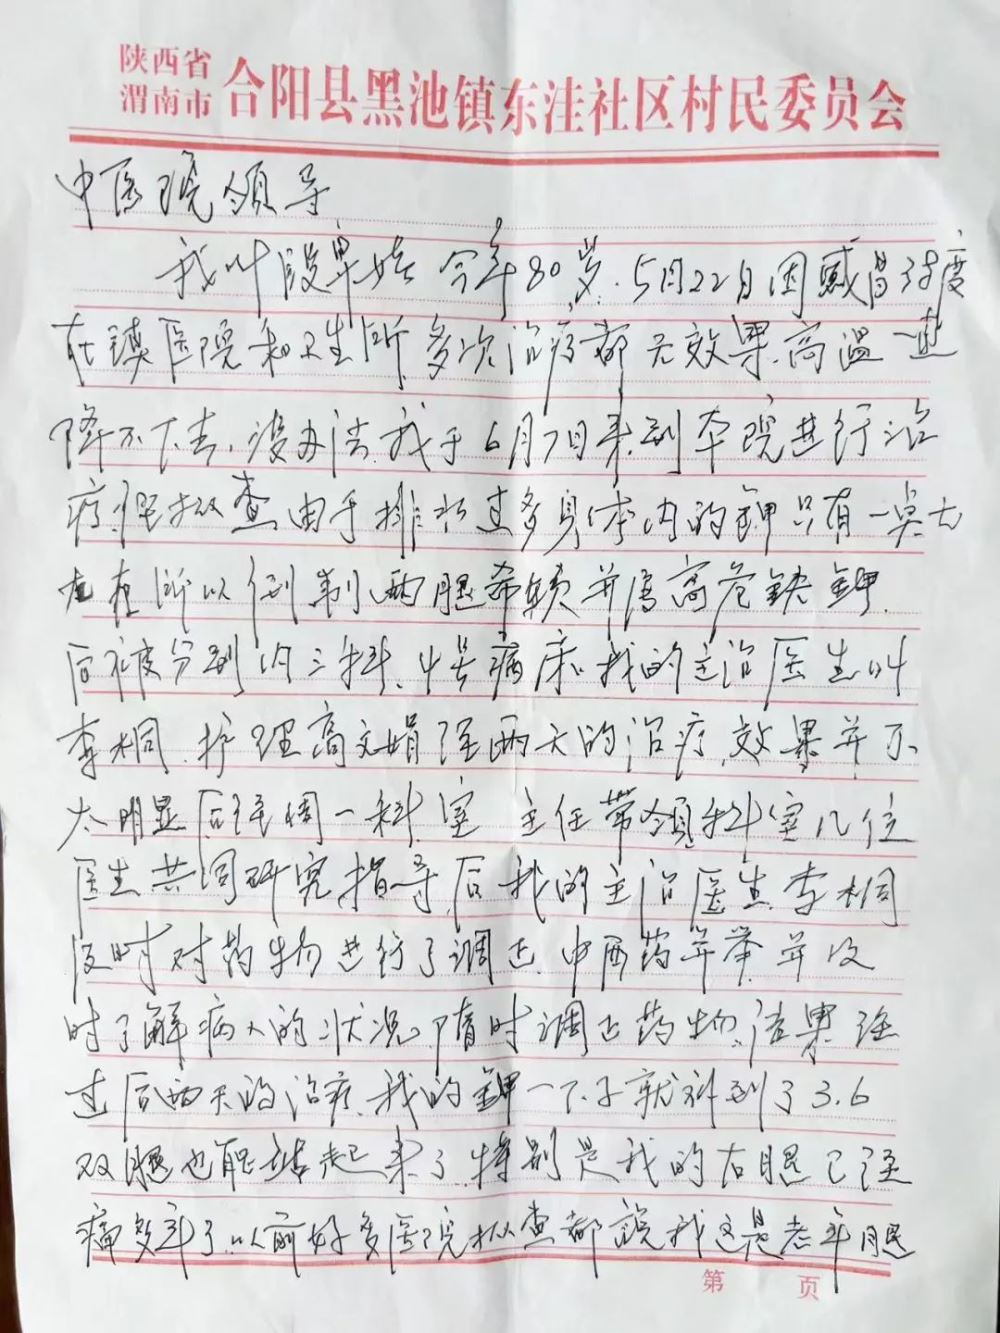 陕西省
渭南市
合阳县黑池镇东洼社区村民委员会
中医院领导
我叫段 今年80岁.5月22日因感冒39度
在镇医院和卫生所多次治疗都无效果.高温一直
降不下去,没办法.我于6月7日来到本院进行治
疗 查由于排水过多身体内的钾只有一点七
左右所以 两腿 并属高危缺钾.
后被分到内三科,4号病床我的主治医生叫
李桐.护理高文娟经两天的治疗效果并不
太明显后经周一科室 主任带领科室几位
医生共同研究指导后我的主治医生李桐
及时对药物进行了调正.中西药并举并及
时了解病人的状况随时调正药物结果经
过后两天的治疗.我的钾一下子就升到了3.6
双腿也能站起来了特别是我的右腿已经
痛多年了.以前好多医院检查都说我这是老年腿
第 页